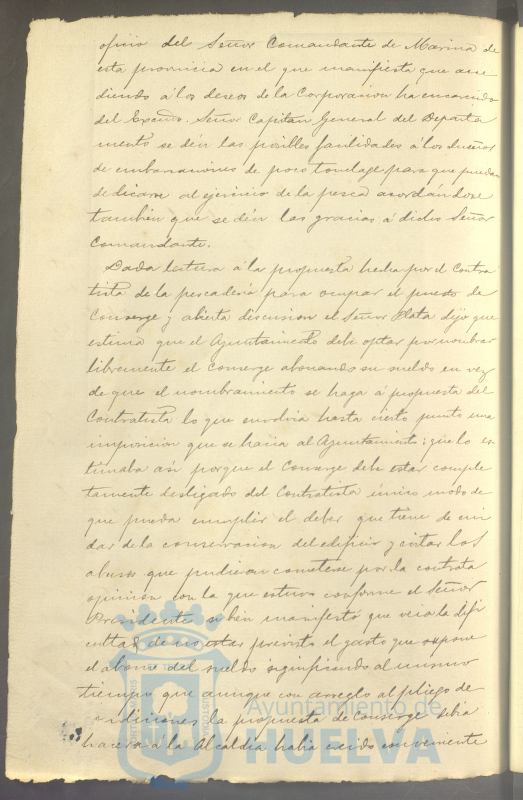 oficio del Señor Comandante de Marina de
esta provincia en el que manifiesta que acce
diendo á los deseos de la Corporacion ha encarecido
del Excmo. Señor Capitan General del Departa
mento se dén las posibles facilidades á los dueños
de embarcaciones de poco tonelage para que puedan
dedicarse al ejercicio de la pesca acordándose
tambien que se dén las gracias á dicho Señor
Comandante.
Dada lectura á la propuesta hecha por el Contra
tista de la pescadería para ocupar el puesto de
Conserge y abierta discusion el Señor Plata dijo que
estima que el Ayuntamiento debe optar por nombrar
libremente el Conserge abonando su sueldo en vez
de que el nombramiento se haga á propuesta del
Contratista lo que envolvia hasta cierto punto una
imposicion que se hacia al Ayuntamiento; que lo es
timaba asi porque el Conserge debe estar comple
tamente desligado del Contratista único modo de
que pueda cumplir el deber que tiene de cui
dar de la conservacion del edificio y evitar los
abusos que pudieran cometerse por la contrata
opinion con la que estuvo conforme el Señor
Presidente si bien manifestó que veia la difi
cultad de no estar previsto el gasto que supone
el abono del sueldo significando al mismo
tiempo que aunque con arreglo al pliego de
condiciones la propuesta de Conserge debia
hacerse á la Alcaldia habia creido conveniente
Ayuntamiento de
HUELVA